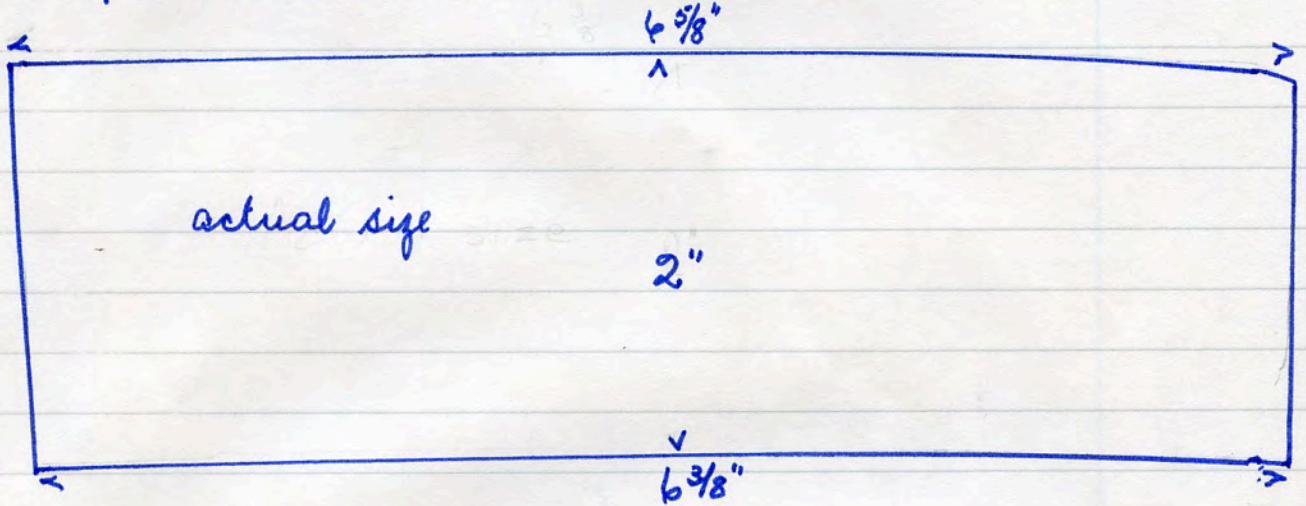 6 5/8"
actual size
2"
6 3/8"